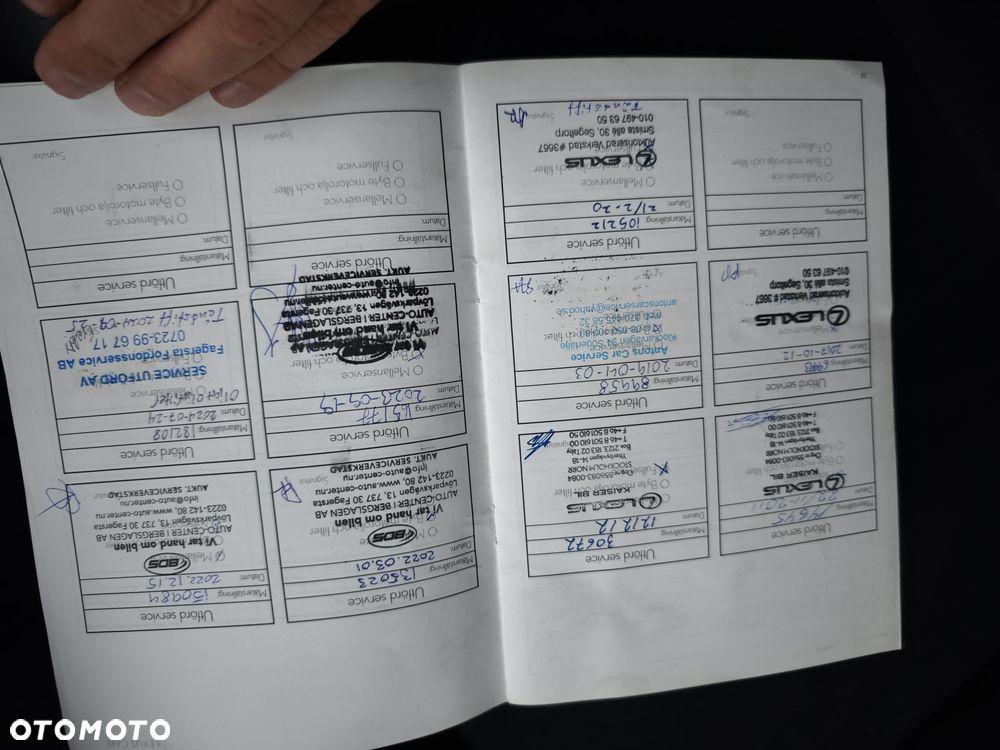 Utförd service
Mätarställning: 14645
Datum:
LEXUS
KAISER BIL
Org.nr: 556083-0084
STOCKHOLM NORR
Ytterbyvägen 14-18
Box 2123 183 02 Täby
T +46 8 501 610 00
F +46 8 501 610 50
Utförd service
Mätarställning: 30672
Datum: 12.12.12
LEXUS
KAISER BIL
Org.nr: 556083-0084
STOCKHOLM NORR
Ytterbyvägen 14-18
Box 2123 183 02 Täby
T +46 8 501 610 00
F +46 8 501 610 50
Utförd service
Mätarställning:
Datum: 2017-10-12
Mellanservice
LEXUS
Auktoriserad Verkstad # 3667
Smista allé 30, Segeltorp
010-497 63 50
Utförd service
Mätarställning: 89458
Datum: 2019-01-03
Antons Car Service
Klockarvägen 94 Södertälje
antonscarservice@yahoo.se
Utförd service
Mätarställning:
Datum:
Mellanservice
Byte motorolja och filter
Fullservice
Signatur
Utförd service
Mätarställning: 105212
Datum: 21/2-20
Mellanservice
LEXUS
Auktoriserad Verkstad #3667
Smista allé 30, Segeltorp
010-497 63 50
Tändstift
Signatur
Utförd service
Mätarställning: 135023
Datum: 2022.03.01
BDS
Vi tar hand om bilen
AUTO-CENTER I BERGSLAGEN AB
Lövparksvägen 13, 737 30 Fagersta
0223-142 80, www.auto-center.nu
info@auto-center.nu
AUKT. SERVICEVERKSTAD
Utförd service
Mätarställning: 150984
Datum: 2022.12.15
BDS
Vi tar hand om bilen
AUTO-CENTER I BERGSLAGEN AB
Lövparksvägen 13, 737 30 Fagersta
0223-142 80, www.auto-center.nu
info@auto-center.nu
AUKT. SERVICEVERKSTAD
Utförd service
Mätarställning:
Datum: 2023-09-19
Mellanservice
Vi tar hand om bilen
AUTO-CENTER I BERGSLAGEN AB
Lövparksvägen 13, 737 30 Fagersta
info@auto-center.nu
AUKT. SERVICEVERKSTAD
Utförd service
Mätarställning: 182109
Datum: 2024-07-24
SERVICE UTFÖRD AV
Fagersta Fordonsservice AB
0723-99 67 17
Tändstift 2024-09-25
Utförd service
Mätarställning:
Datum:
Mellanservice
Byte motorolja och filter
Fullservice
Signatur
Utförd service
Mätarställning:
Datum:
Mellanservice
Byte motorolja och filter
Fullservice
Signatur
OTOMOTO